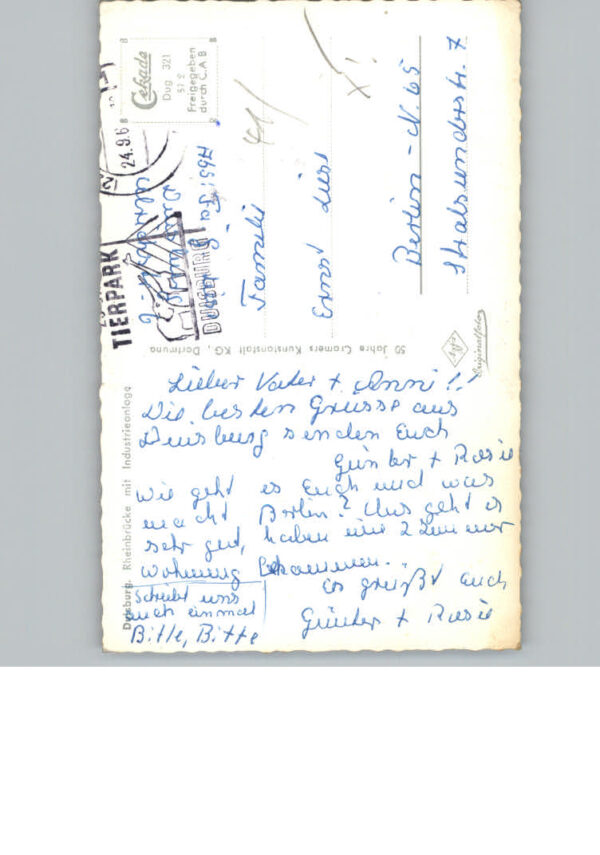 Lieber Vater + Anni!!
Die besten Grüsse aus
Duisburg senden Euch
Günter + Rosie
Wie geht es Euch und was
macht Berlin? Uns geht es
sehr gut, haben eine 2 Zimmer
wohnung bekommen.
Es grüßt euch
Günter + Rosie
Schreibt uns
auch einmal
Bitte, Bitte
Duisburg. Rheinbrücke mit Industrieanlage
50 Jahre Cramers Kunstanstalt KG, Dortmund
Cekade
Dug 321
Freigegeben
durch C.A.B
24.9.6
TIERPARK
DUISBURG
Familie
Ernst
Berlin - N. 65
Stralsunderstr. 7
Originalfoto